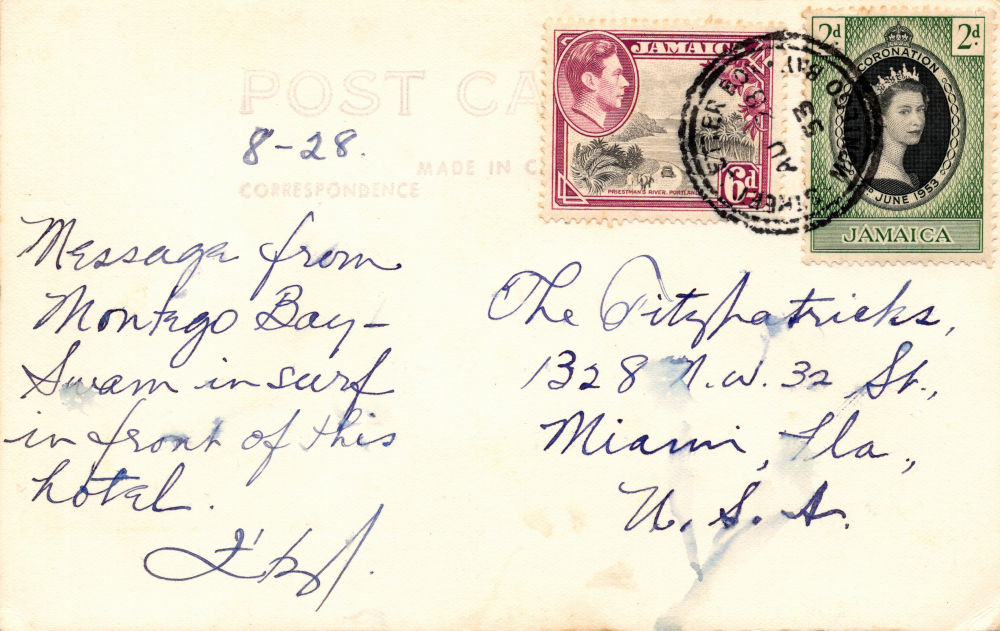 POST CA
8-28.
MADE IN C
CORRESPONDENCE
Message from
Montego Bay-
Swam in surf
in front of this
hotel.
The Fitzpatricks,
1328 N.W. 32 St.,
Miami, Fla.,
U. S. A.
JAMAICA
PRIESTMAN'S RIVER, PORTLAND
6d
2d 2d
CORONATION
JUNE 1953
JAMAICA
STREET LETTER BOX
MONTEGO BAY
AU 53